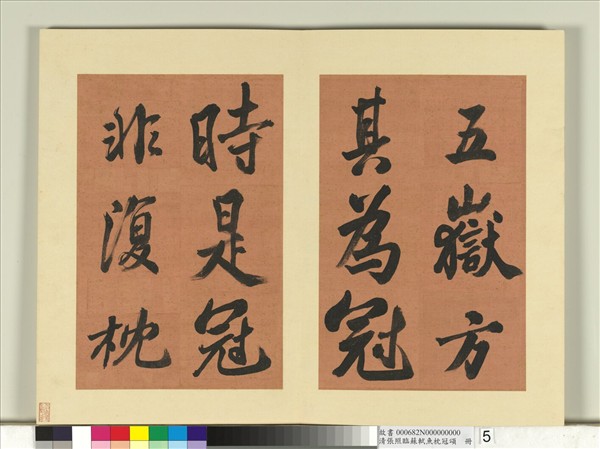 五嶽方
其為冠
時是冠
非復枕
故書 000682N000000000
清張照臨蘇軾魚枕冠頌 冊
5